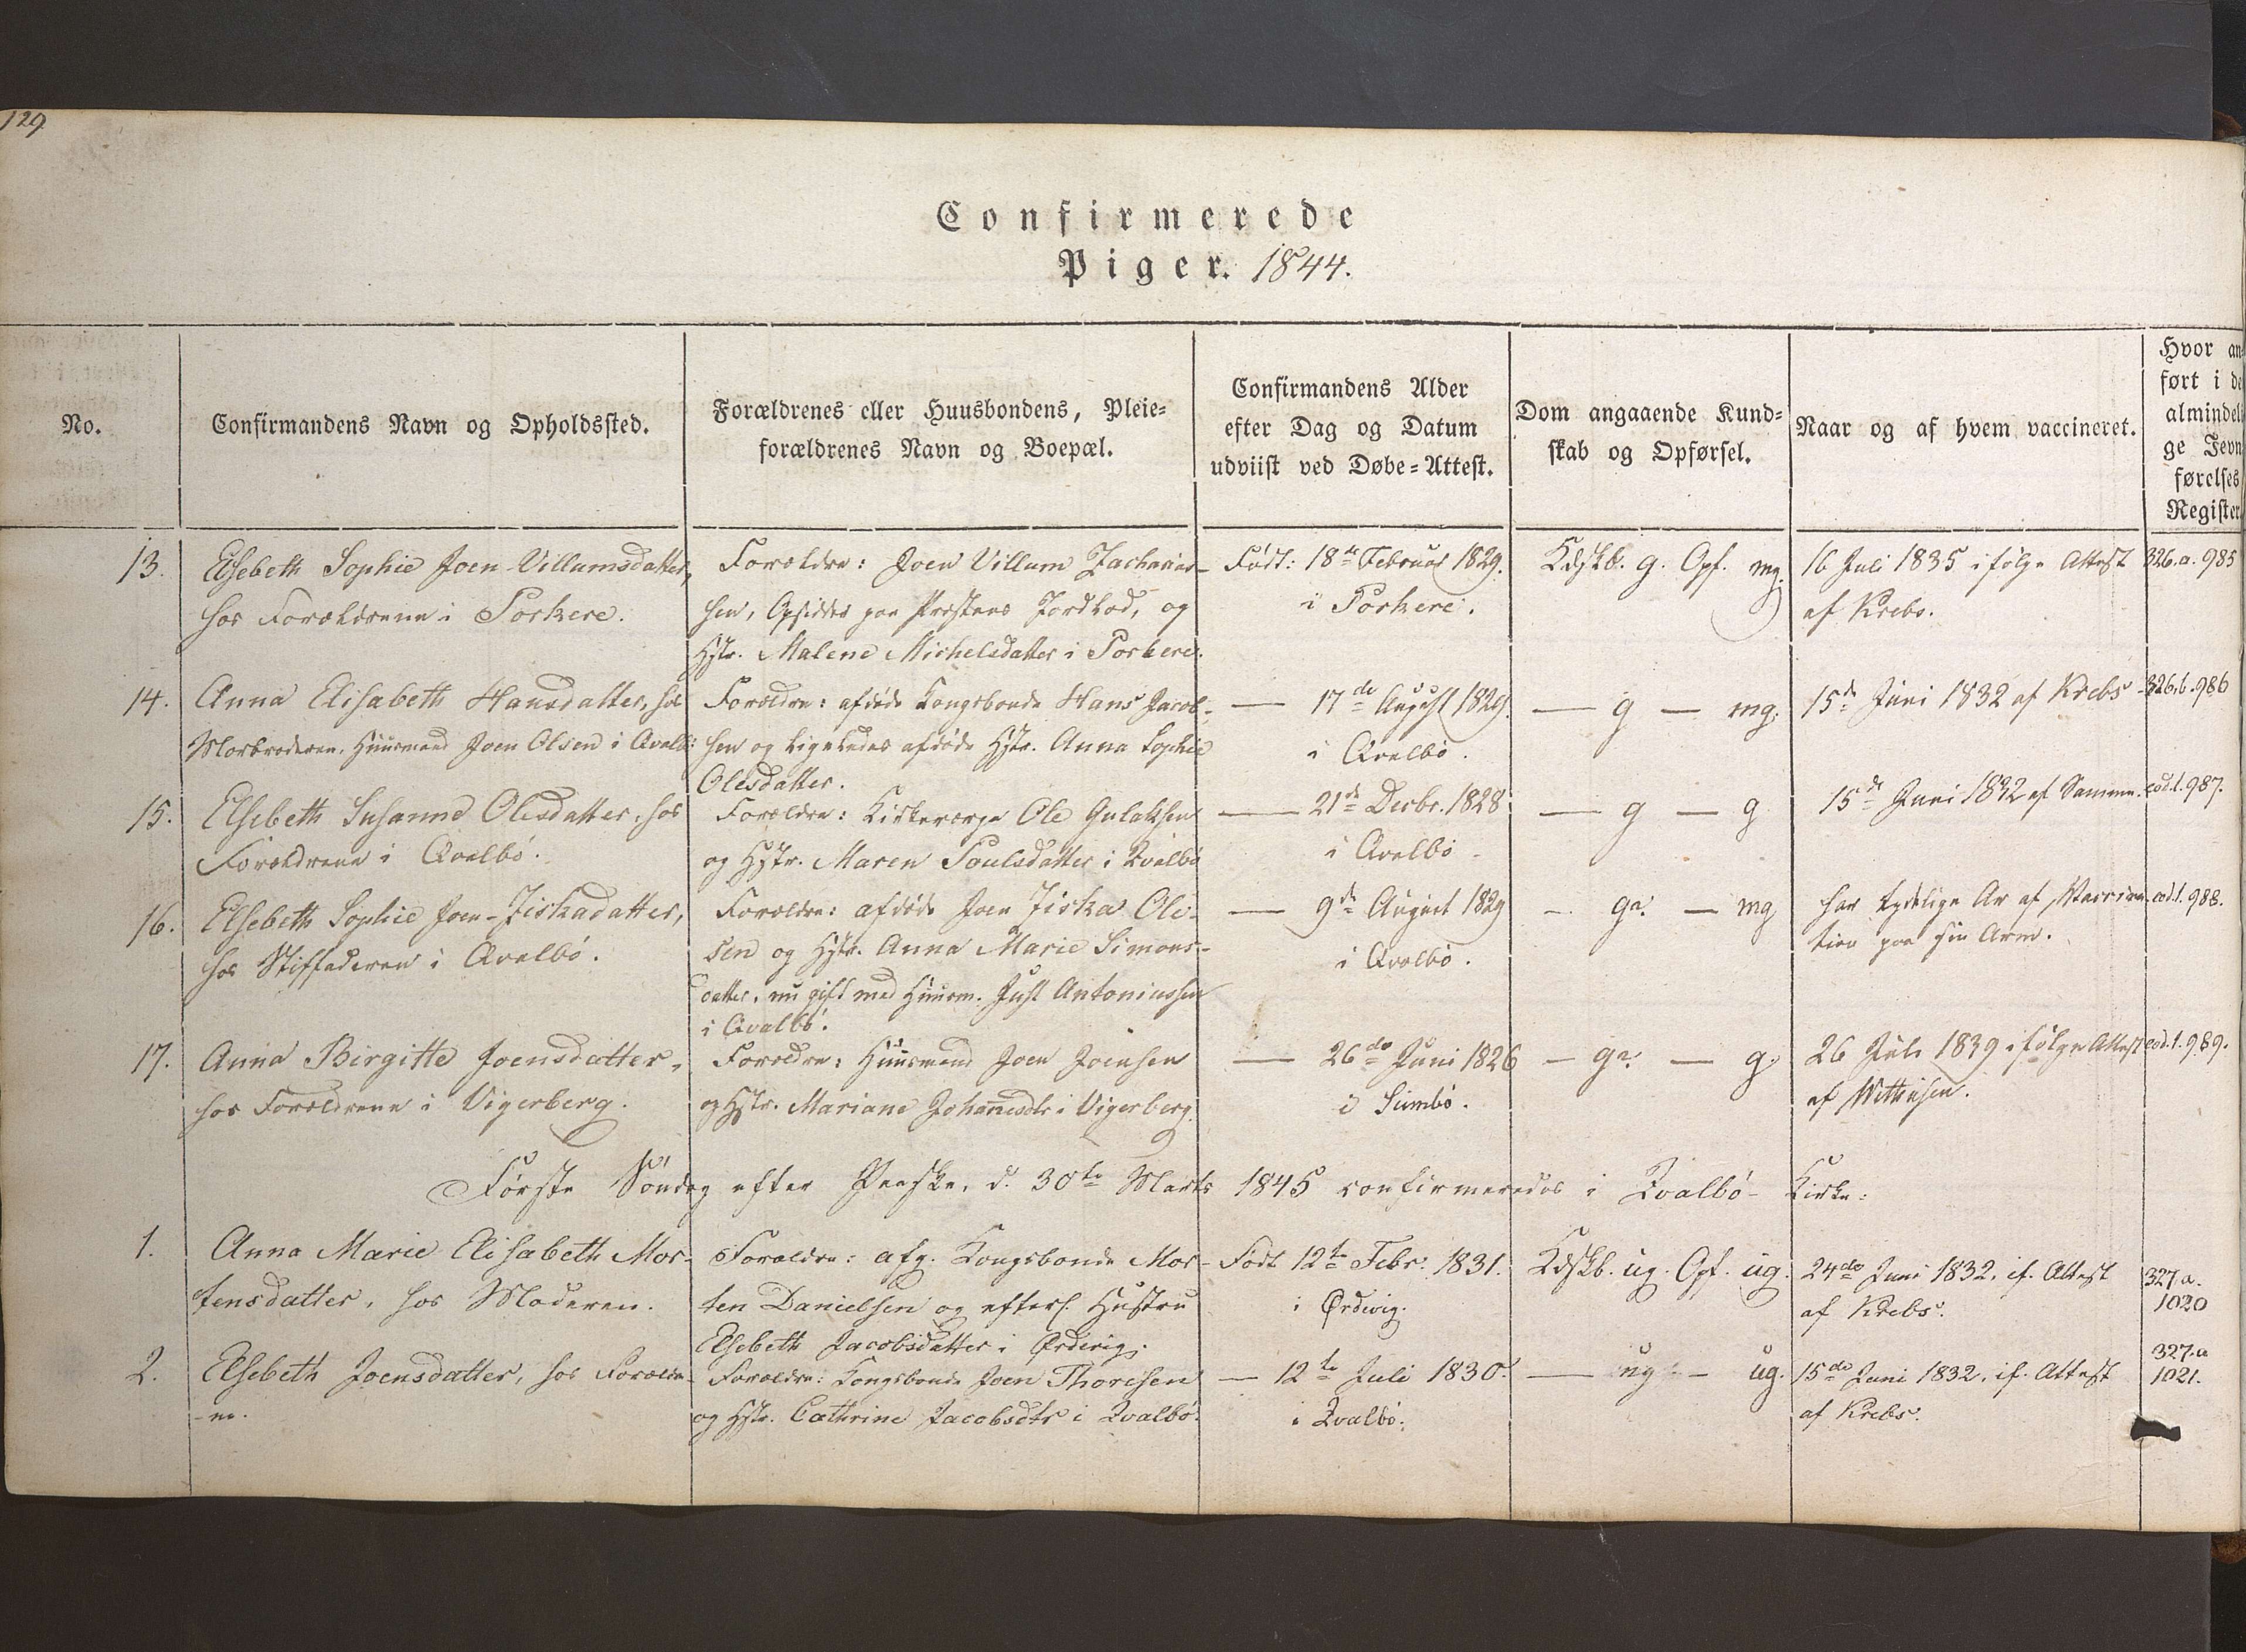 129
Confirmerede
Piger. 1844.
No.
Confirmandens Navn og Opholdssted.
Forældrenes eller Huusbondens, Pleie-
forældrenes Navn og Boepæl.
Confirmandens Alder
efter Dag og Datum
udviist ved Døbe-Attest.
Dom angaaende Kund-
skab og Opførsel.
Naar og af hvem vaccineret.
Hvor an-
ført i de
almindeli
ge Jevn
førelses
Register.
13.
Elsebeth Sophie Joen-Villumsdatter,
hos Forældrene i Porkere.
Forældre: Joen Villum Zacharias-
sen, Opsidder paa Præstens Jordlod, og
Hstr. Malene Michelsdatter i Porkere.
Født: 18de Februar 1829.
i Porkere.
Kdskb. g. Opf. mg.
16 Juli 1835 ifølge Attest
af Krebs.
326.a.985
14.
Anna Elisabeth Hansdatter, hos
Morbroderen, Huusmand Joen Olsen i Qvalb:
Forældre: afdøde Kongsbonde Hans Jacob-
sen og ligeledes afdøde Hstr. Anna Sophie
Olesdatter.
— 17de August 1829.
i Qvalbö.
— g — mg.
15de Juni 1832 af Krebs
326.b.986
15.
Elsebeth Susanne Olesdatter, hos
Forældrene i Qvalbö.
Forældre: Kirkeværge Ole Gulaksen
og Hstr. Maren Poulsdatter i Qvalbö
— 21de Decbr. 1828
i Qvalbö
— g — g
15de Juni 1832 af Samme.
eod.l.987.
16.
Elsebeth Sophie Joen-Ziskadatter,
hos Stiffaderen i Qvalbö.
Forældre: afdøde Joen Ziska Ole-
sen og Hstr. Anna Marie Simons-
datter, nu gift med Huusm. Just Antoniussen
i Qvalbö.
— 9de August 1829
i Qvalbö.
— ga. — mg
har tydelige Ar af Vaccina-
tion paa sin Arm.
eod.l.988.
17.
Anna Birgitte Joensdatter,
hos Forældrene i Vigerberg.
Forældre: Huusmand Joen Joensen
og Hstr. Mariane Johannesdtr i Vigerberg.
— 26de Juni 1826
i Sumbö.
— ga. — g.
26 Juli 1839 ifølge Attest
af
eod.l.989.
Første Søndag efter Paaske, d. 30te Marts 1845 confirmeredes i Qvalbö-Kirke:
1.
Anna Marie Elisabeth Mor-
tensdatter, hos Moderen.
Forældre: afg. Kongsbonde Mor-
ten Danielsen og efterl. Hustru
Elsebeth Jacobsdatter i Ørdevig.
Født 12te Febr. 1831.
i Ørdevig.
Kdskb. ug. Opf. ug.
24de Juni 1832, if. Attest
af Krebs.
327.a.
1020
2.
Elsebeth Joensdatter, hos Foræld-
ne.
Forældre: Kongsbonde Joen Thoresen
og Hstr. Cathrine Jacobsdtr i Qvalbö.
— 12te Juli 1830.
i Qvalbö.
— ug — ug.
15de Juni 1832, if. Attest
af Krebs.
327.a
1021.